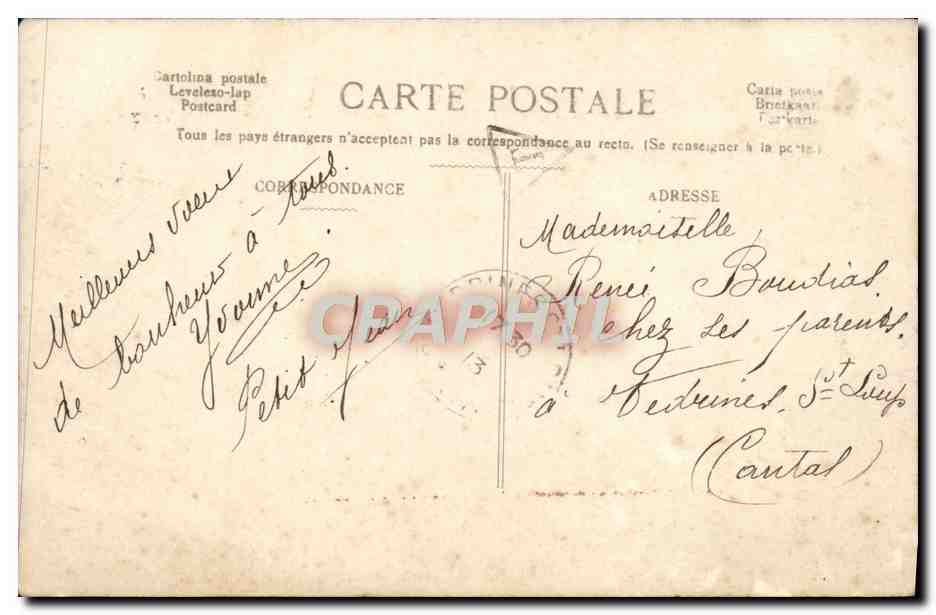 Cartolina postale
Levelezo-lap
Postcard
CARTE POSTALE
Carta posta
Briefkaart
Tous les pays étrangers n'acceptent pas la correspondance au recto. (Se renseigner à la poste.)
CORRESPONDANCE
ADRESSE
Meilleurs vœux
de bonheur à tous.
Yvonne
Petit Jean
Mademoiselle
Renée Boudias
chez ses parents.
à Vedrines. St Loup
(Cantal)
CPAPHIL
30
13